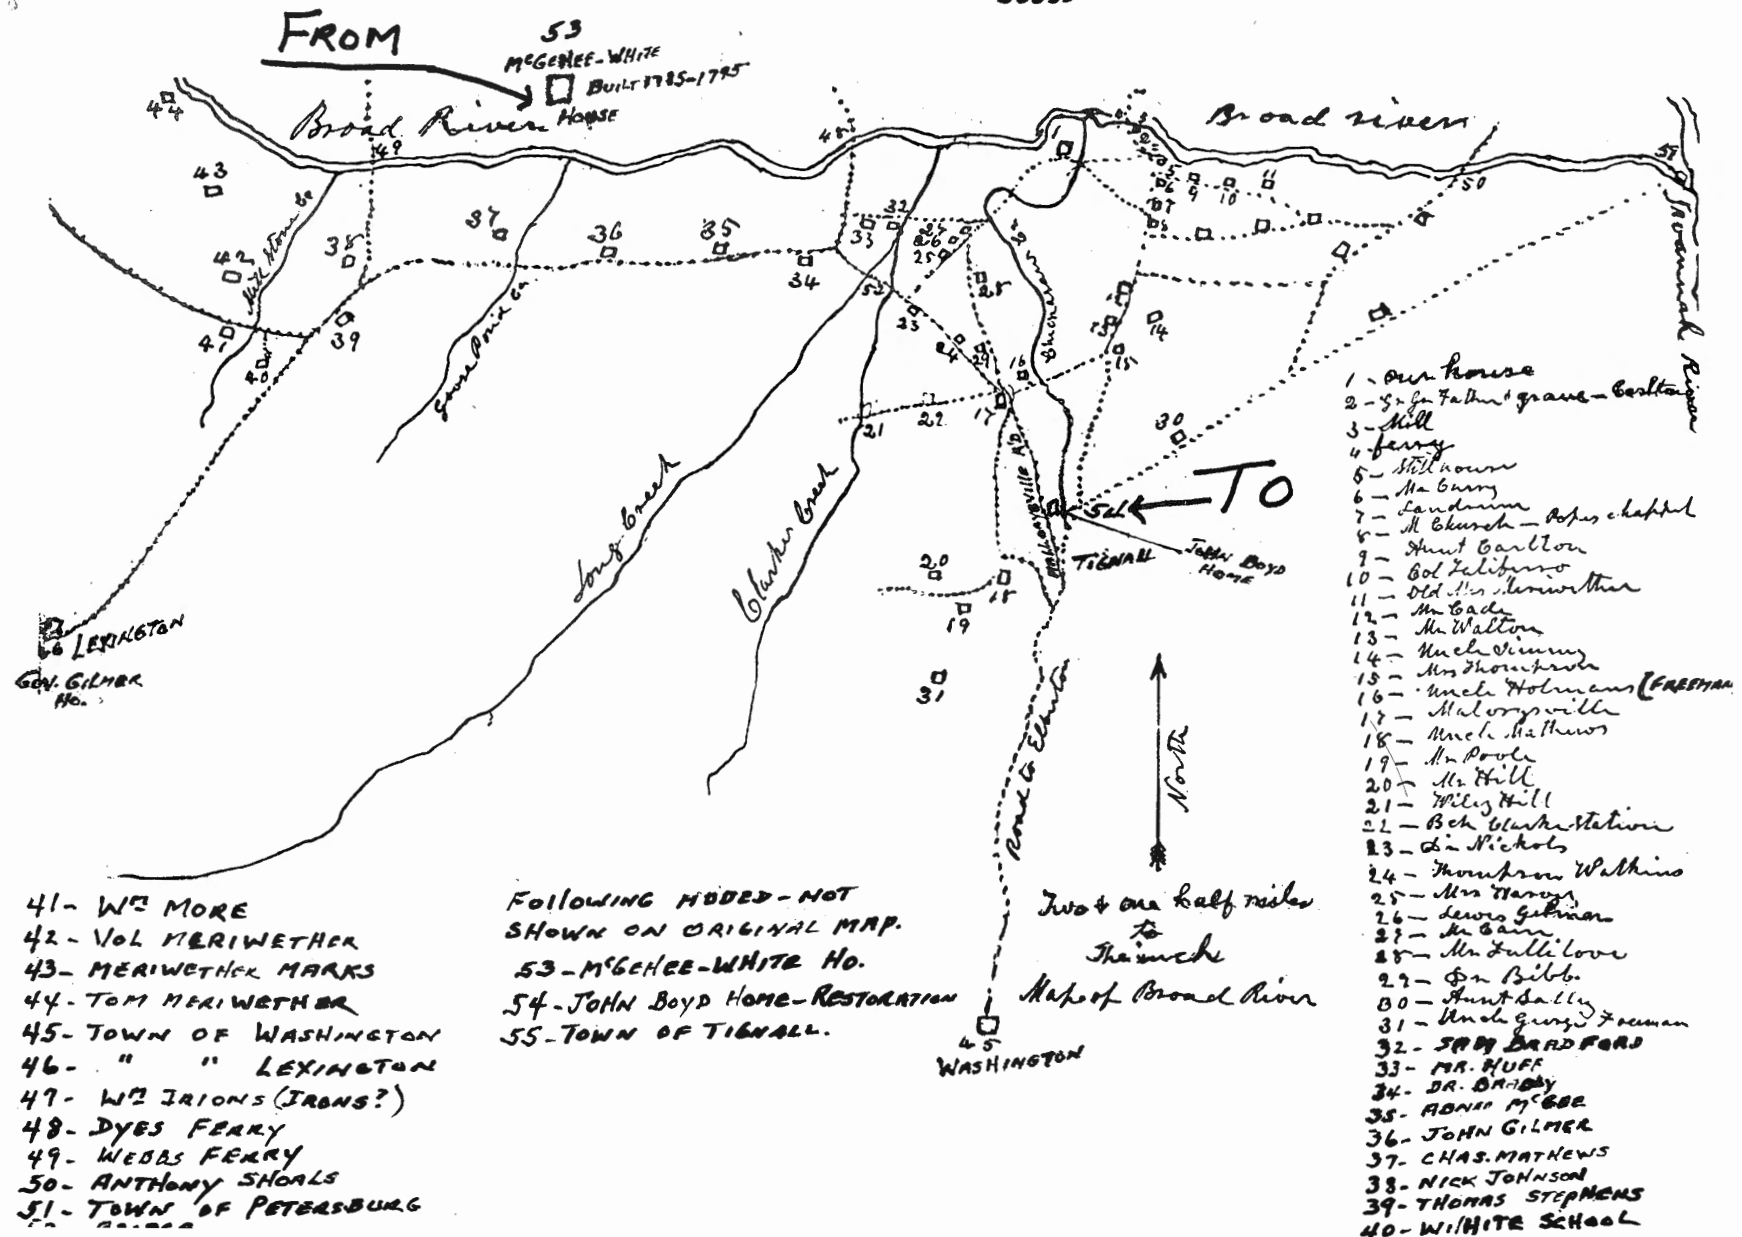 FROM
53
McGEHEE-WHITE
BUILT 1785-1795
HOUSE
Broad River
Broad river
44
49
48
1
50
51
43
42
41
40
39
38
37
36
35
34
33
32
52
27
26
25
28
23
24
29
16
17
22
21
5
6
7
8
9
10
11
14
15
30
20
19
18
31
Goose Pond Cr.
Long Creek
Clarkes Creek
Savannah River
MALLORYSVILLE RD
TO
54
TIGNALL
JOHN BOYD
HOME
46
LEXINGTON
GOV. GILMER
HO.
Road to Elberton
North
Two & one half miles
to
The inch
Map of Broad River
45
WASHINGTON
1 - our house
2 - Gr Gr Father's grave -
3 - Mill
4 - ferry
5 - Still house
6 - Mc Curry
7 - Landrum
8 - M Church - Popes chappel
9 - Aunt Carlton
10 - Col Taliferro
11 - Old Mrs Meriwether
12 - Mr Cade
13 - Mr Walton
14 - Uncle Jimmy
15 - Mrs Thompson
16 - Uncle Holmans (FREEMAN
17 - Malorysville
18 - Uncle Mathews
19 - Mr Poole
20 - Mr Hill
21 - Wiley Hill
22 - Clarke Station
23 - Nickols
24 - Thompson Watkins
25 - Mrs
26 - Lewis Gilmer
27 - Mr Cain
28 - Mr Fullilove
29 - Dr Bibb
30 - Aunt Sally
31 - Uncle George Freeman
32 - SAM BRADFORD
33 - MR. HUFF
34 - DR.
35 - ABNER McGEE
36 - JOHN GILMER
37 - CHAS. MATHEWS
38 - NICK JOHNSON
39 - THOMAS STEPHENS
40 - WILHITE SCHOOL
41 - Wm MORE
42 - VOL MERIWETHER
43 - MERIWETHER MARKS
44 - TOM MERIWETHER
45 - TOWN OF WASHINGTON
46 - " " LEXINGTON
47 - Wm IRIONS (IRONS?)
48 - DYES FERRY
49 - WEBBS FERRY
50 - ANTHONY SHOALS
51 - TOWN OF PETERSBURG
FOLLOWING ADDED - NOT
SHOWN ON ORIGINAL MAP.
53 - McGEHEE-WHITE HO.
54 - JOHN BOYD HOME - RESTORATION
55 - TOWN OF TIGNALL.